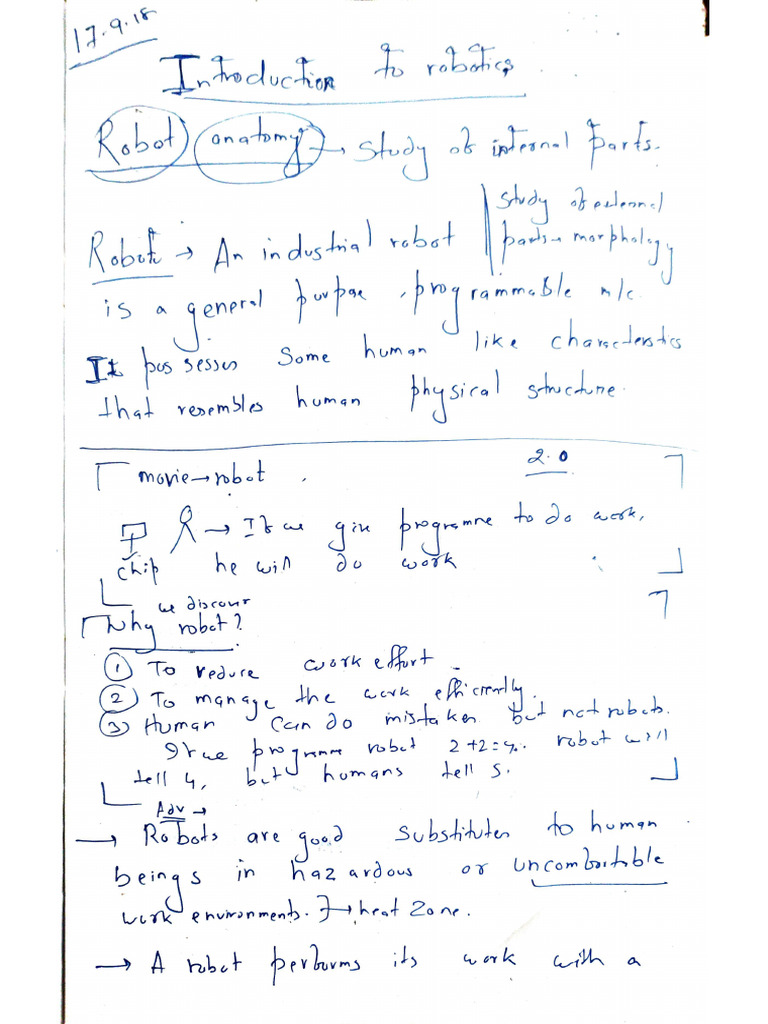 17.9.18
Introduction to robotics
Robot anatomy → Study of internal parts.
Study of external
parts → morphology
Robot → An industrial robot
is a general purpose, programmable m/c.
It possesses some human like characteristics
that resembles human physical structure.
movie → robot. 2.0
→ If we give programme to do work,
chip he will do work
we discour
Why robot?
① To reduce work effort.
② To manage the work efficiently.
③ Human can do mistakes but not robots.
If we programme robot 2+2=4. robot will
tell 4, but humans tell 5.
Adv →
→ Robots are good substitutes to human
beings in hazardous or uncomfortable
work environments. → heat zone.
→ A robot performs its work with a